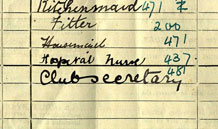 Kitchenmaid 471
Fitter 200
Housemaid 471
Hospital Nurse 437
481
Club secretary